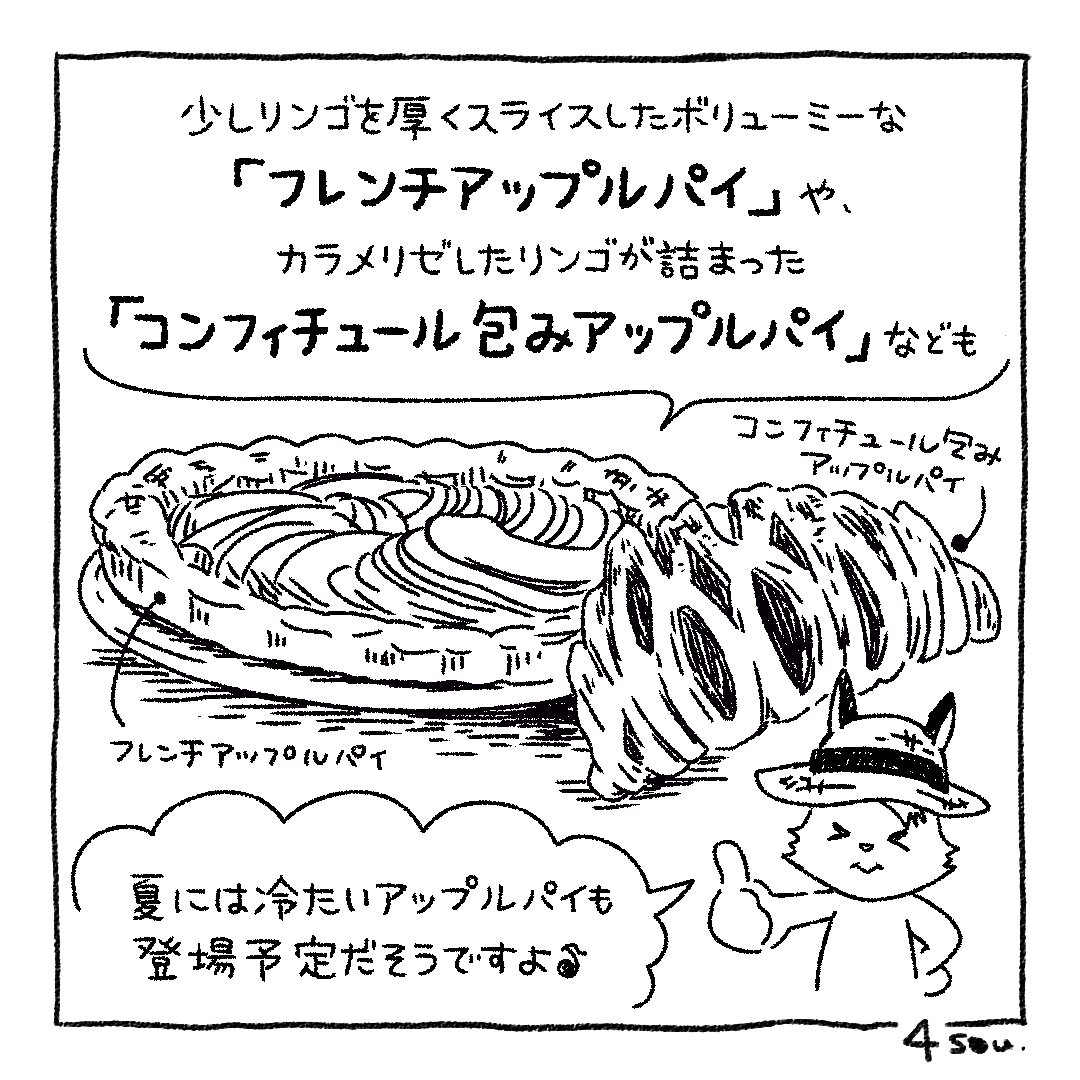 少しリンゴを厚くスライスしたボリューミーな
「フレンチアップルパイ」や、
カラメリゼしたリンゴが詰まった
「コンフィチュール包みアップルパイ」なども
コンフィチュール包み
アップルパイ
フレンチアップルパイ
夏には冷たいアップルパイも
登場予定だそうですよ♪
4 sou.